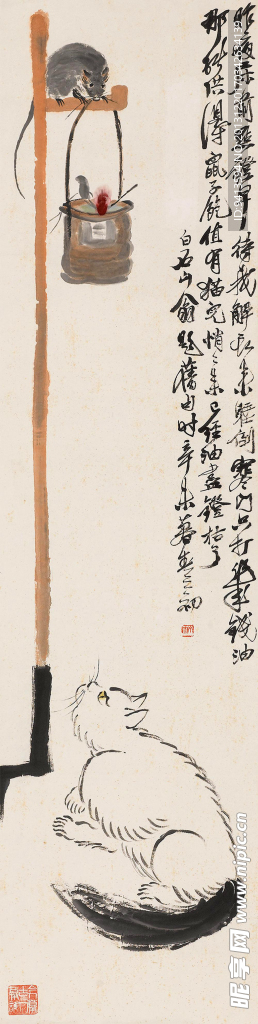 昨夜床前點燈早待我解衣來睡倒寒門只打一錢油
那能供得鼠子飽值有猫兒悄悄來已經油盡燈枯了
白石山翁題舊句時辛未暮春之初
昵享网 www.nipic.cn